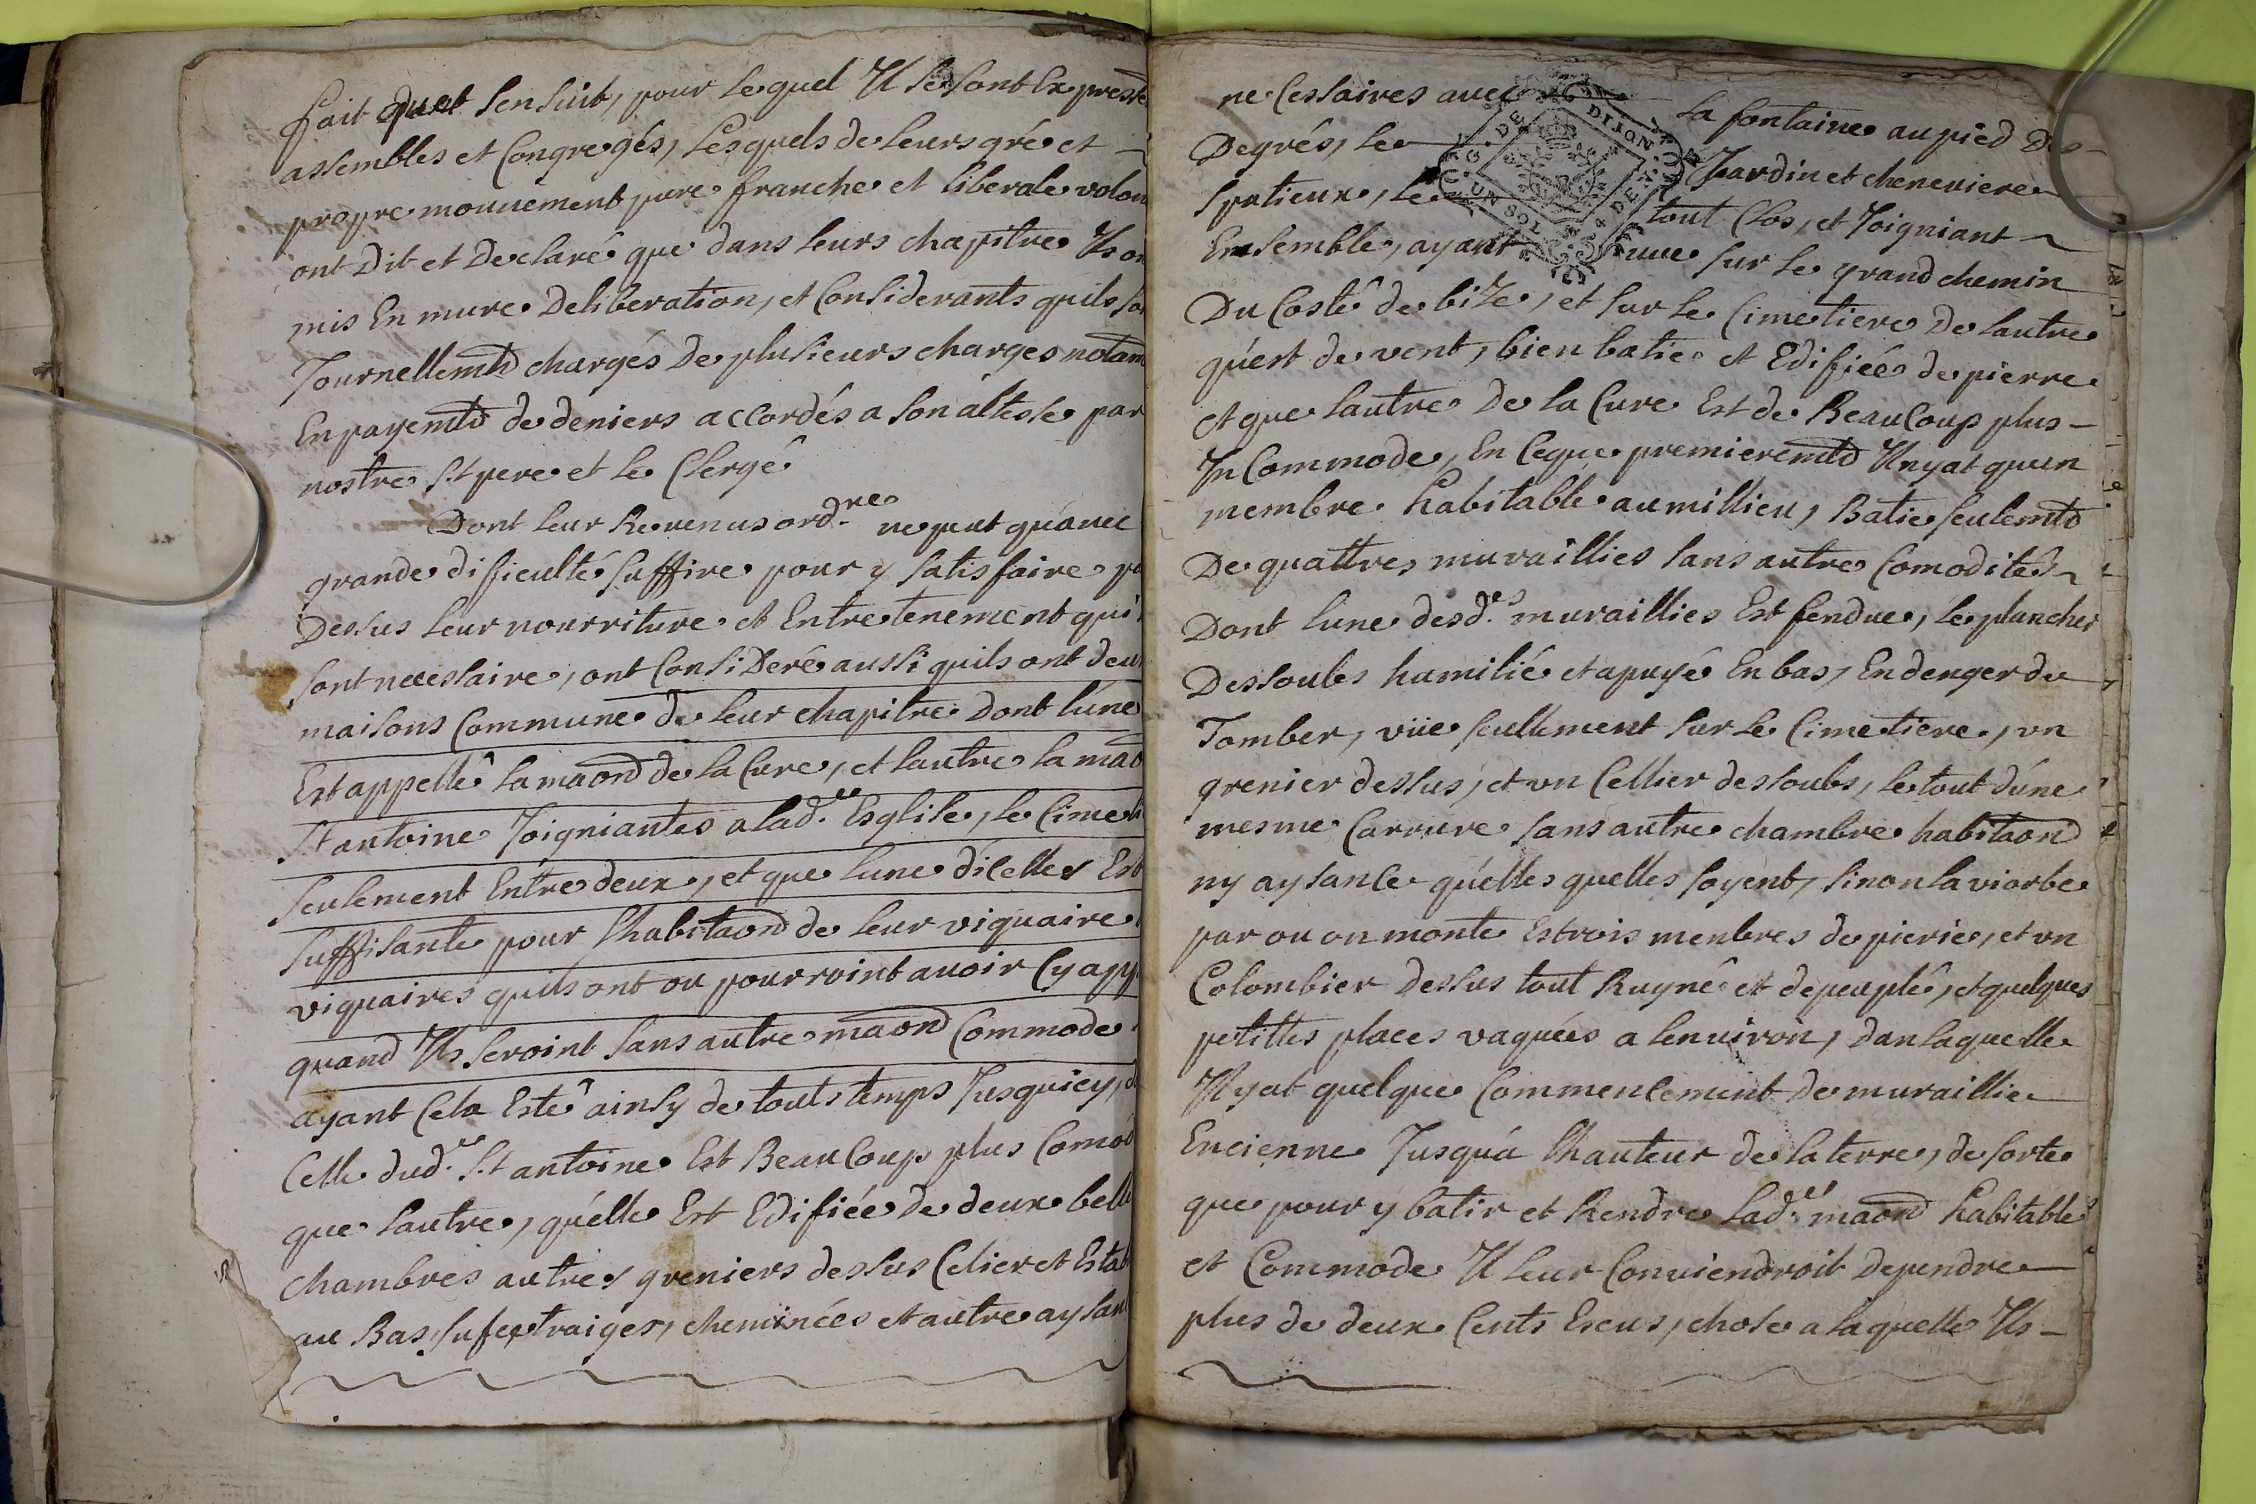 fait quet sensuit, pour lequel Il se sont expresse
assembles et Congregés, Lesquels de leurs gré et
propre mouuement pure franche et liberale volon
ont Dit et Declaré que dans leurs chapitre Ils on
mis En mure Deliberation, et Considerants quils so
Journellemtd chargés De plusieurs charges notam
En payemtd de deniers accordés a son altesse par
nostre St pere et le Clergé
Dont leur Revenus ordre ne peut quauec
grande dificulté suffire pour y satisfaire pa
Dessus leur nourriture et Entretenement qui
sont necessaire, ont Consideré aussi quils ont deux
maisons Commune de leur chapitre Dont lúne
Est appellé la maond de la Cure, et lautre la mao
St antoine Joigniantes a lad.e Esglise, le Cimeti
seulement Entre deux, et que lune dicelles Est
suffisante pour lhabitaond de leur viquaire
viquaires quils ont ou pourroint auoir Cy app
quand Ils seroint sans autre maond Commode
ayant Cela Esté ainsy de touts temps Jusquicy,
Celle dud. St antoine Est Beaucoup plus Comod
que lautre, quélle Est Edifiée De deux belle
chambres autres greniers dessus Celier et Estab
au Bas, cheminées et autre aysan
necessaires auec la fontaine au pied Des
Degrés, le Jardin et cheneuiere
spatieux, le tout Clos, et Joigniant
Ensemble, ayant vuue sur le grand chemin
Du Costé de bize, et sur le Cimetiere De lautre
quést de vent, bien batie et Edifiée de pierre
et que lautre De la Cure Est de Beaucoup plus
InCommode, En Ceque premieremtd Il nyat quun
membre habitable au millieu, Batie seulemtd
De quattres muraillies sans autre Comodités
Dont lune desd.es muraillies Est fendue, le plancher
Dessoubs humilié et apuyé En bas, En denger de
Tomber, vüe seullement sur le Cimetiere, vn
grenier dessus, et vn Cellier dessoubs, le tout dúne
mesme Carrure sans autre chambre habitaond
ny aysance quélles quelles soyent, sinon la viorbe
par ou on monte Es trois menbres de pierie, et vn
Colombier Dessus tout Ruyné et depeuplé, et quelques
petittes places vaquées a lenuiron, dan laquelle
Il yat quelque Commencement de muraillie
Encienne Jusquà lhauteur de la terre, de sorte
que pour y batir et Rendre lad.e maond habitable
et Commode Il leur Conuiendroit Dependre
plus de deux Cents Escus, chose a laquelle Ils
G. DE DIJON
UN SOL 4 DEN